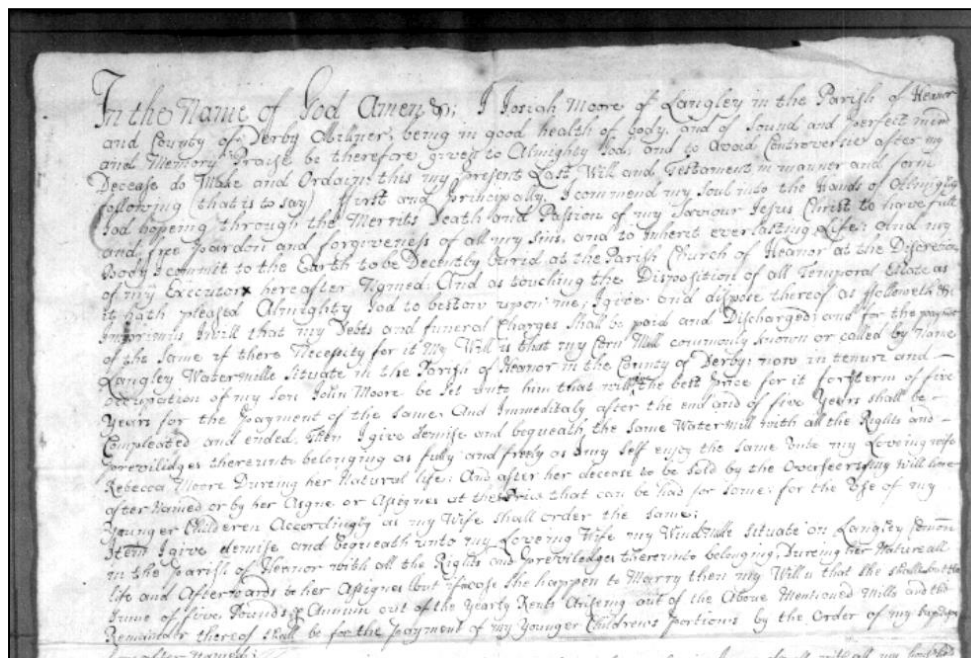 In the Name of God Amen &c; I Josiah Moore of Langley in the Parish of Heanor
and County of Derby Millner, being in good health of body, and of Sound and perfect mind
and Memory Praise be therefore given to Almighty God; and to Avoid Controversie after my
Decease do Make and Ordain this my present Last Will and Testament in manner and form
following (that is to say) ffirst and Principally, I commend my Soul into the Hands of Almighty
God hopeing through the Merrits Death and Passion of my Saviour Jesus Christ to have full
and free Pardon and forgiveness of all my Sins, and to Inherit everlasting Life; and my
Body I commit to the Earth to be Decently burid at the Parish Church of Heanor at the Discretion
of my Executor hereafter Named: And as touching the Disposition of all Temporal Estate as
it hath pleased Almighty God to bestow upon me; I give and dispose thereof as ffolloweth &c
Imprimis, I will that my Debts and funeral Charges Shall be paid and Discharged; and for the payment
of the Same if there Necessity for it My Will is that my Corn Mill commonly known or called by Name
Langley Watermille Situate in the Parish of Heanor in the County of Derby; now in tenure and
Occupation of my Son John Moore be Set unto him that will the best Price for it for term of five
Years for the Payment of the Same. And Immeditaly after the end and of five Years shall be
Compleated and ended, Then I give demise and bequeath the Same Watermill with all the Rights and
Previlidges thereunto belonging as fully and freely as I my Self enjoy the Same Unto my Loveing wife
Rebecca Moore Dureing her Natural life; And after her decease to be Sold by the Overseers my Will
after Named or by her Asigne or Assignes at the Price that can be had for Same; for the Use of my
Younger Childeren Accordingly as my Wife Shall order the Same;
Item I give demise and bequeath unto my Loveing Wife my Windmille Situate on Langley Common
in the Parish of Heanor with all the Rights and Previledges thereunto belonging Dureing her Naturall
life and Afterwards to her Assignes but if case She happen to Marry then my Will is that She shall
Sume of five Pounds Annum out of the Yearly Rents Ariseing out of the Above Mentioned Mills and the
Remainder thereof Shall be for the payment of my Younger Childrens Portions by the Order of my
after Named;